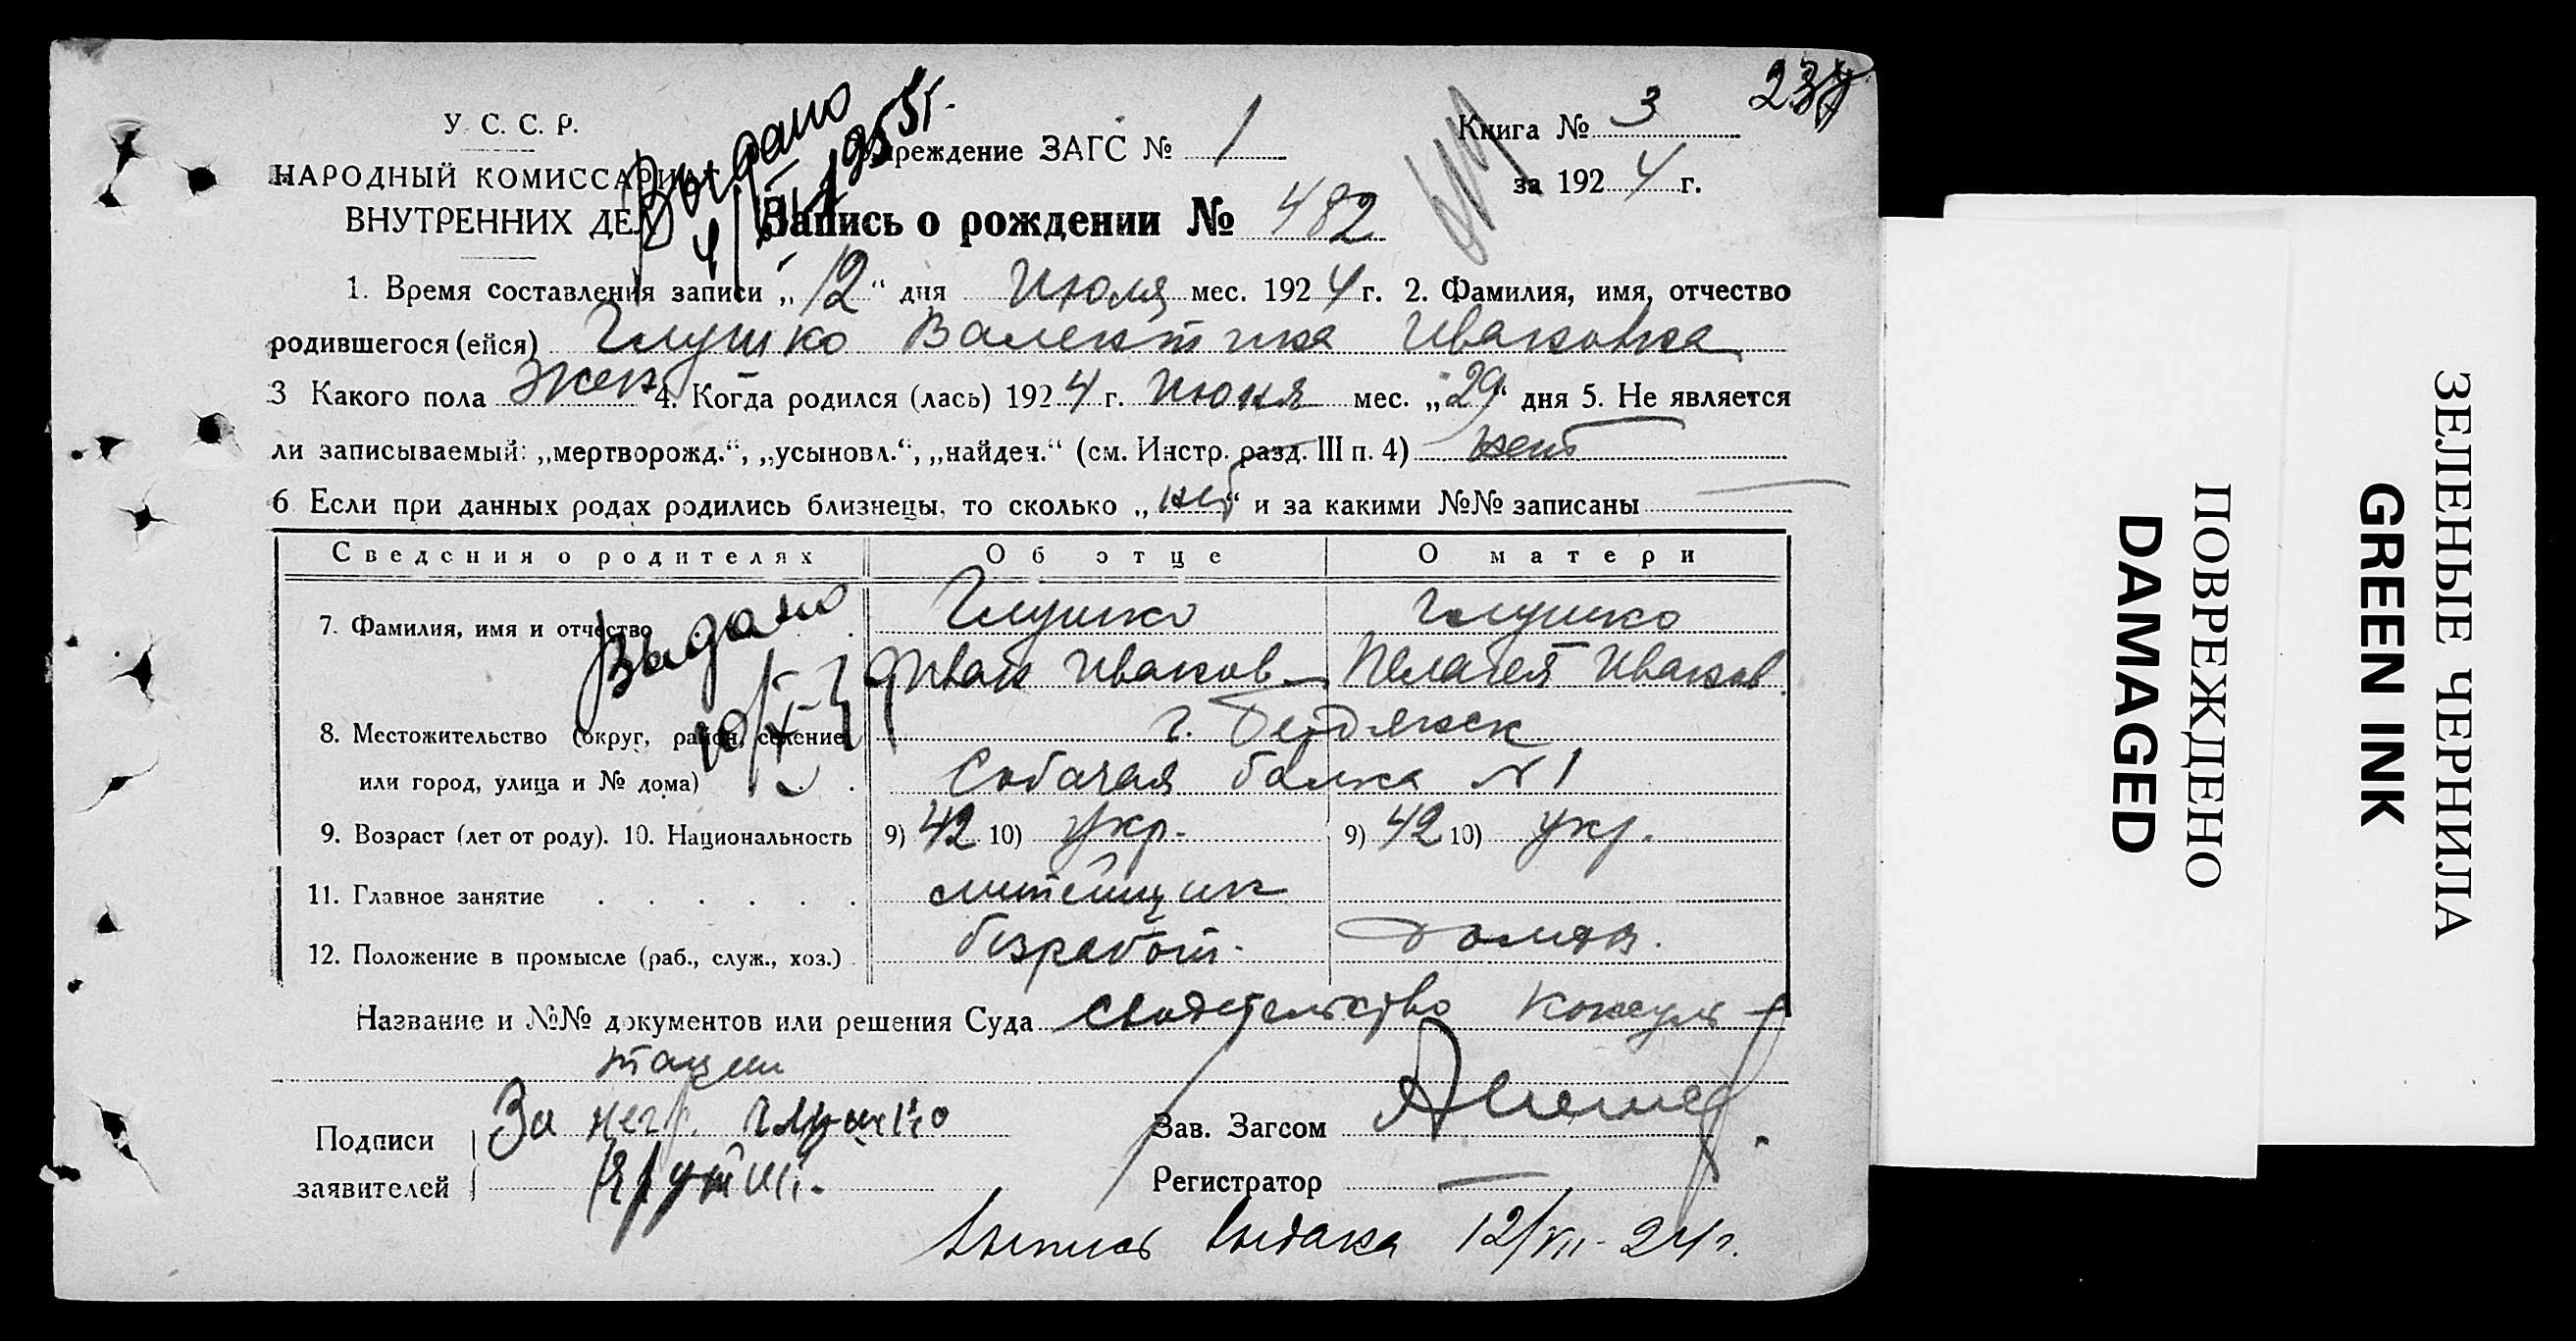 237
У. С. С. Р.
НАРОДНЫЙ КОМИССАРИАТ
ВНУТРЕННИХ ДЕЛ
Выдано
Учреждение ЗАГС № 1
Книга № 3
за 1924 г.
Запись о рождении № 482
1. Время составления записи „12“ дня Июля мес. 1924 г. 2. Фамилия, имя, отчество
родившегося (ейся) Глушко Валентина Ивановна
3 Какого пола жен 4. Когда родился (лась) 1924 г. Июня мес. „29“ дня 5. Не является
ли записываемый: „мертворожд.“, „усыновл.“, „найден.“ (см. Инстр. разд. III п. 4) нет
6 Если при данных родах родились близнецы, то сколько „нет“ и за какими №№ записаны
Сведения о родителях Об отце О матери
7. Фамилия, имя и отчество Глушко Глушко
Иван Иванов Пелагея Иванов
Выдано
8. Местожительство (округ, район, селение г. Бердянск
или город, улица и № дома) Собачая балка № 1
9. Возраст (лет от роду). 10. Национальность 9) 42 10) укр. 9) 42 10) укр.
11. Главное занятие литейщик
12. Положение в промысле (раб., служ., хоз.) безработ. домхоз.
Название и №№ документов или решения Суда свидетельство консуль-
тации
Подписи заявителей За негр. Глушко
Зав. Загсом
Регистратор —
Выпись выдана 12/VII-24 г.
ПОВРЕЖДЕНО
DAMAGED
ЗЕЛЕНЫЕ ЧЕРНИЛА
GREEN INK